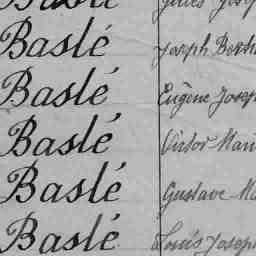 Baslé
Baslé Joseph
Baslé Eugène Joseph
Baslé Victor
Baslé Gustave
Baslé Louis Joseph